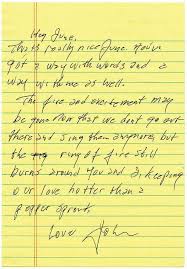 Hey June,
This is really nice June. You've
got a way with words and a
way with me as well.
The fire and excitement may
be gone now that we don't go out
there and sing them anymore, but
the ring of fire still
burns around you and I, keeping
our love hotter than a
pepper sprout.
Love John